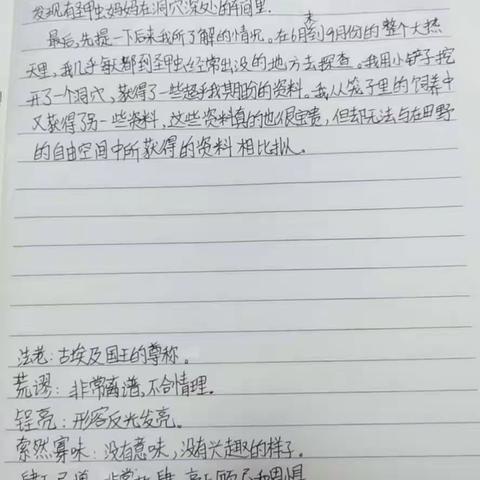 发现有圣甲虫妈妈在洞穴深处的车间里.
最后,先提一下后来我所了解的情况。在6月末到9月份的整个大热
天里,我几乎每天都到圣甲虫经常出没的地方去探查。我用小铲子挖
开了一个洞穴,获得了一些超乎我期盼的资料。我从笼子里的饲养中
又获得了另一些资料,这些资料真的也很宝贵,但却无法与在田野
的自由空间中所获得的资料相比拟.
法老:古埃及国王的尊称。
荒谬:非常离谱,不合情理。
锃亮:形容反光发亮。
索然寡味:没有意味,没有兴趣的样子。